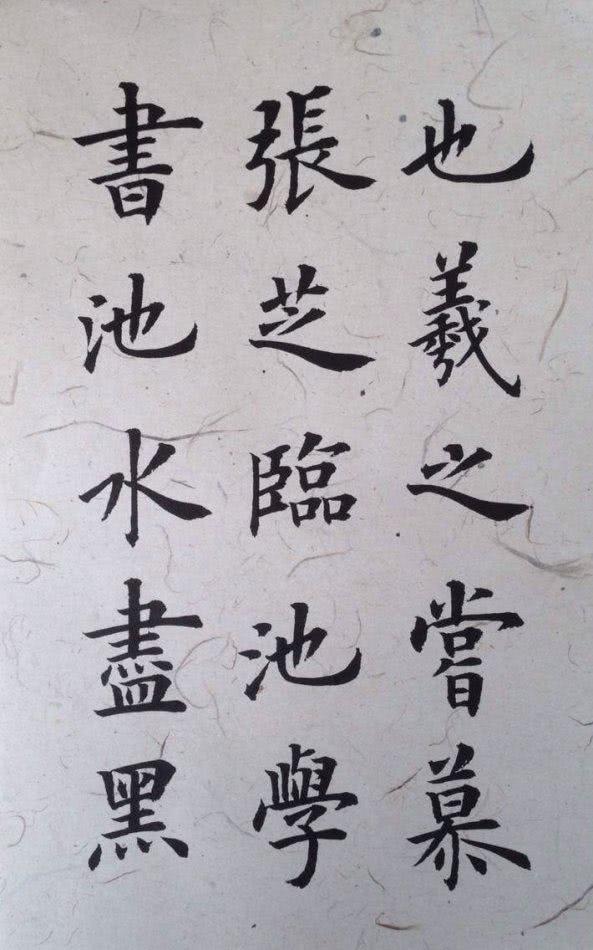 也羲之嘗慕
張芝臨池學
書池水盡黑